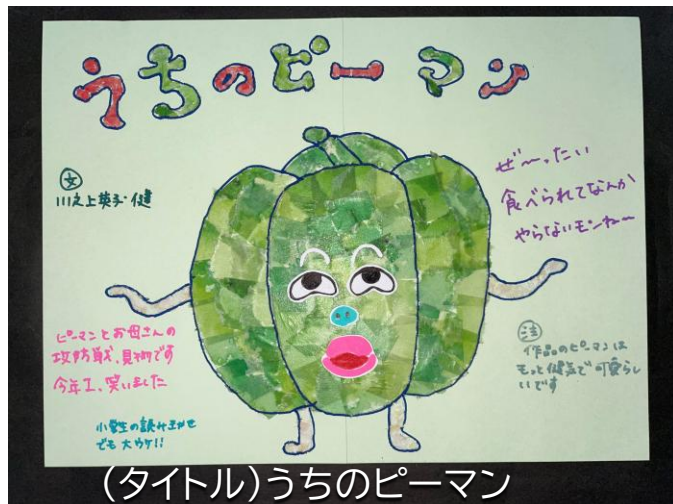 うちのピーマン
文
川之上英子・健
ぜ〜ったい
食べられてなんか
やらないモンね〜
ピーマンとお母さんの
攻防戦、見物です
今年1、笑いました
小学生の読みきかせ
でも大ウケ!!
注
作品のピーマンは
もっと健気で可愛らし
いです
(タイトル)うちのピーマン